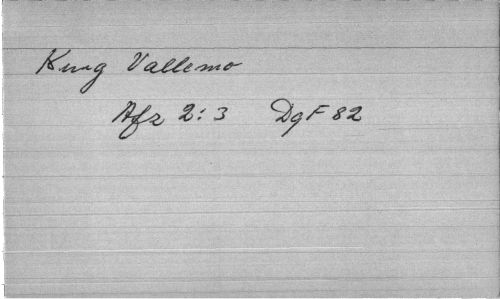 Kung Vallemo
Afz 2:3 DgF 82